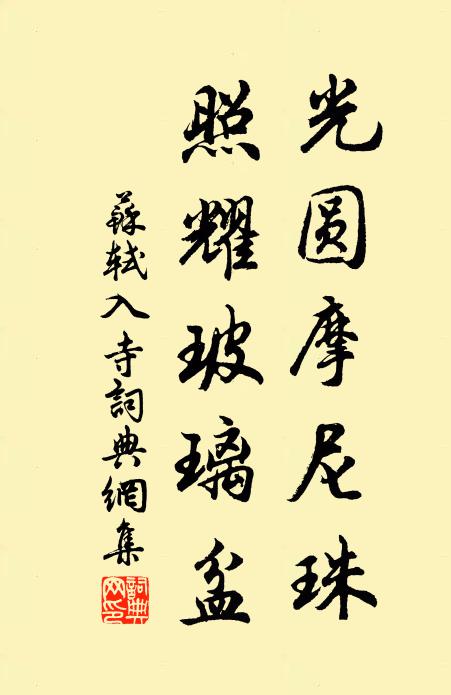 光圆摩尼珠
照耀玻璃盆
蘇軾入寺詞典網集
詞典網印